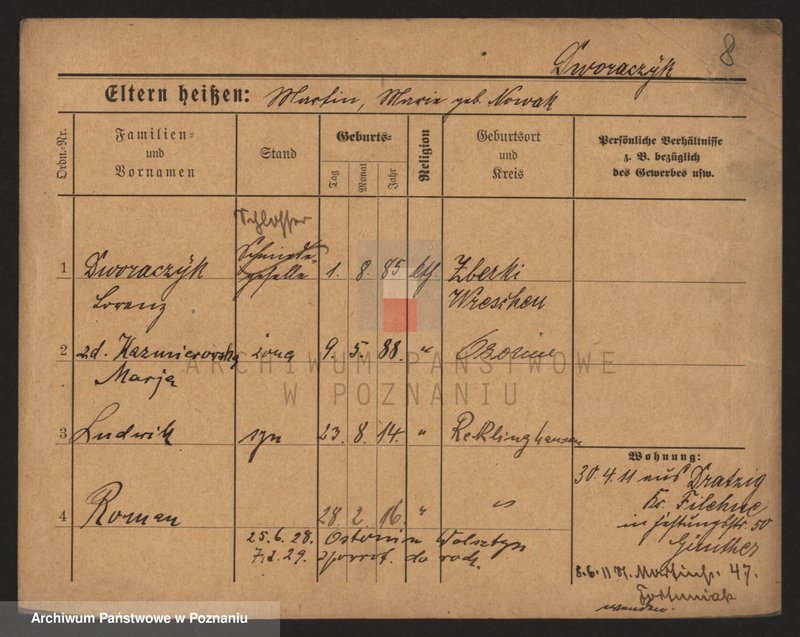 8
Dworaczÿk
Eltern heißen: Martin, Marie geb. Nowak
Ordn.-Nr.
Familien-
und
Vornamen
Stand
Geburts-
Tag
Monat
Jahr
Religion
Geburtsort
und
Kreis
Persönliche Verhältnisse
z. B. bezüglich
des Gewerbes usw.
Schlosser
Schmiede-
geselle
1 Dworaczÿk 1. 8. 85 kth Zberki
Lorenz Wreschen
2 zd. Kazmierowska żona 9. 5. 88. "
Marja
3 Ludwik syn 23. 8. 14. " Reklinghausen
4 Roman 28. 2. 16. " "
25.6.28. Wolsztyn
29.
Wohnung:
30.4.11 aus Dratzig
Kr. Filehne
in 50
Günther
8.6.11 St. Martinstr. 47.
wenden.
ARCHIWUM PAŃSTWOWE
W POZNANIU
Archiwum Państwowe w Poznaniu